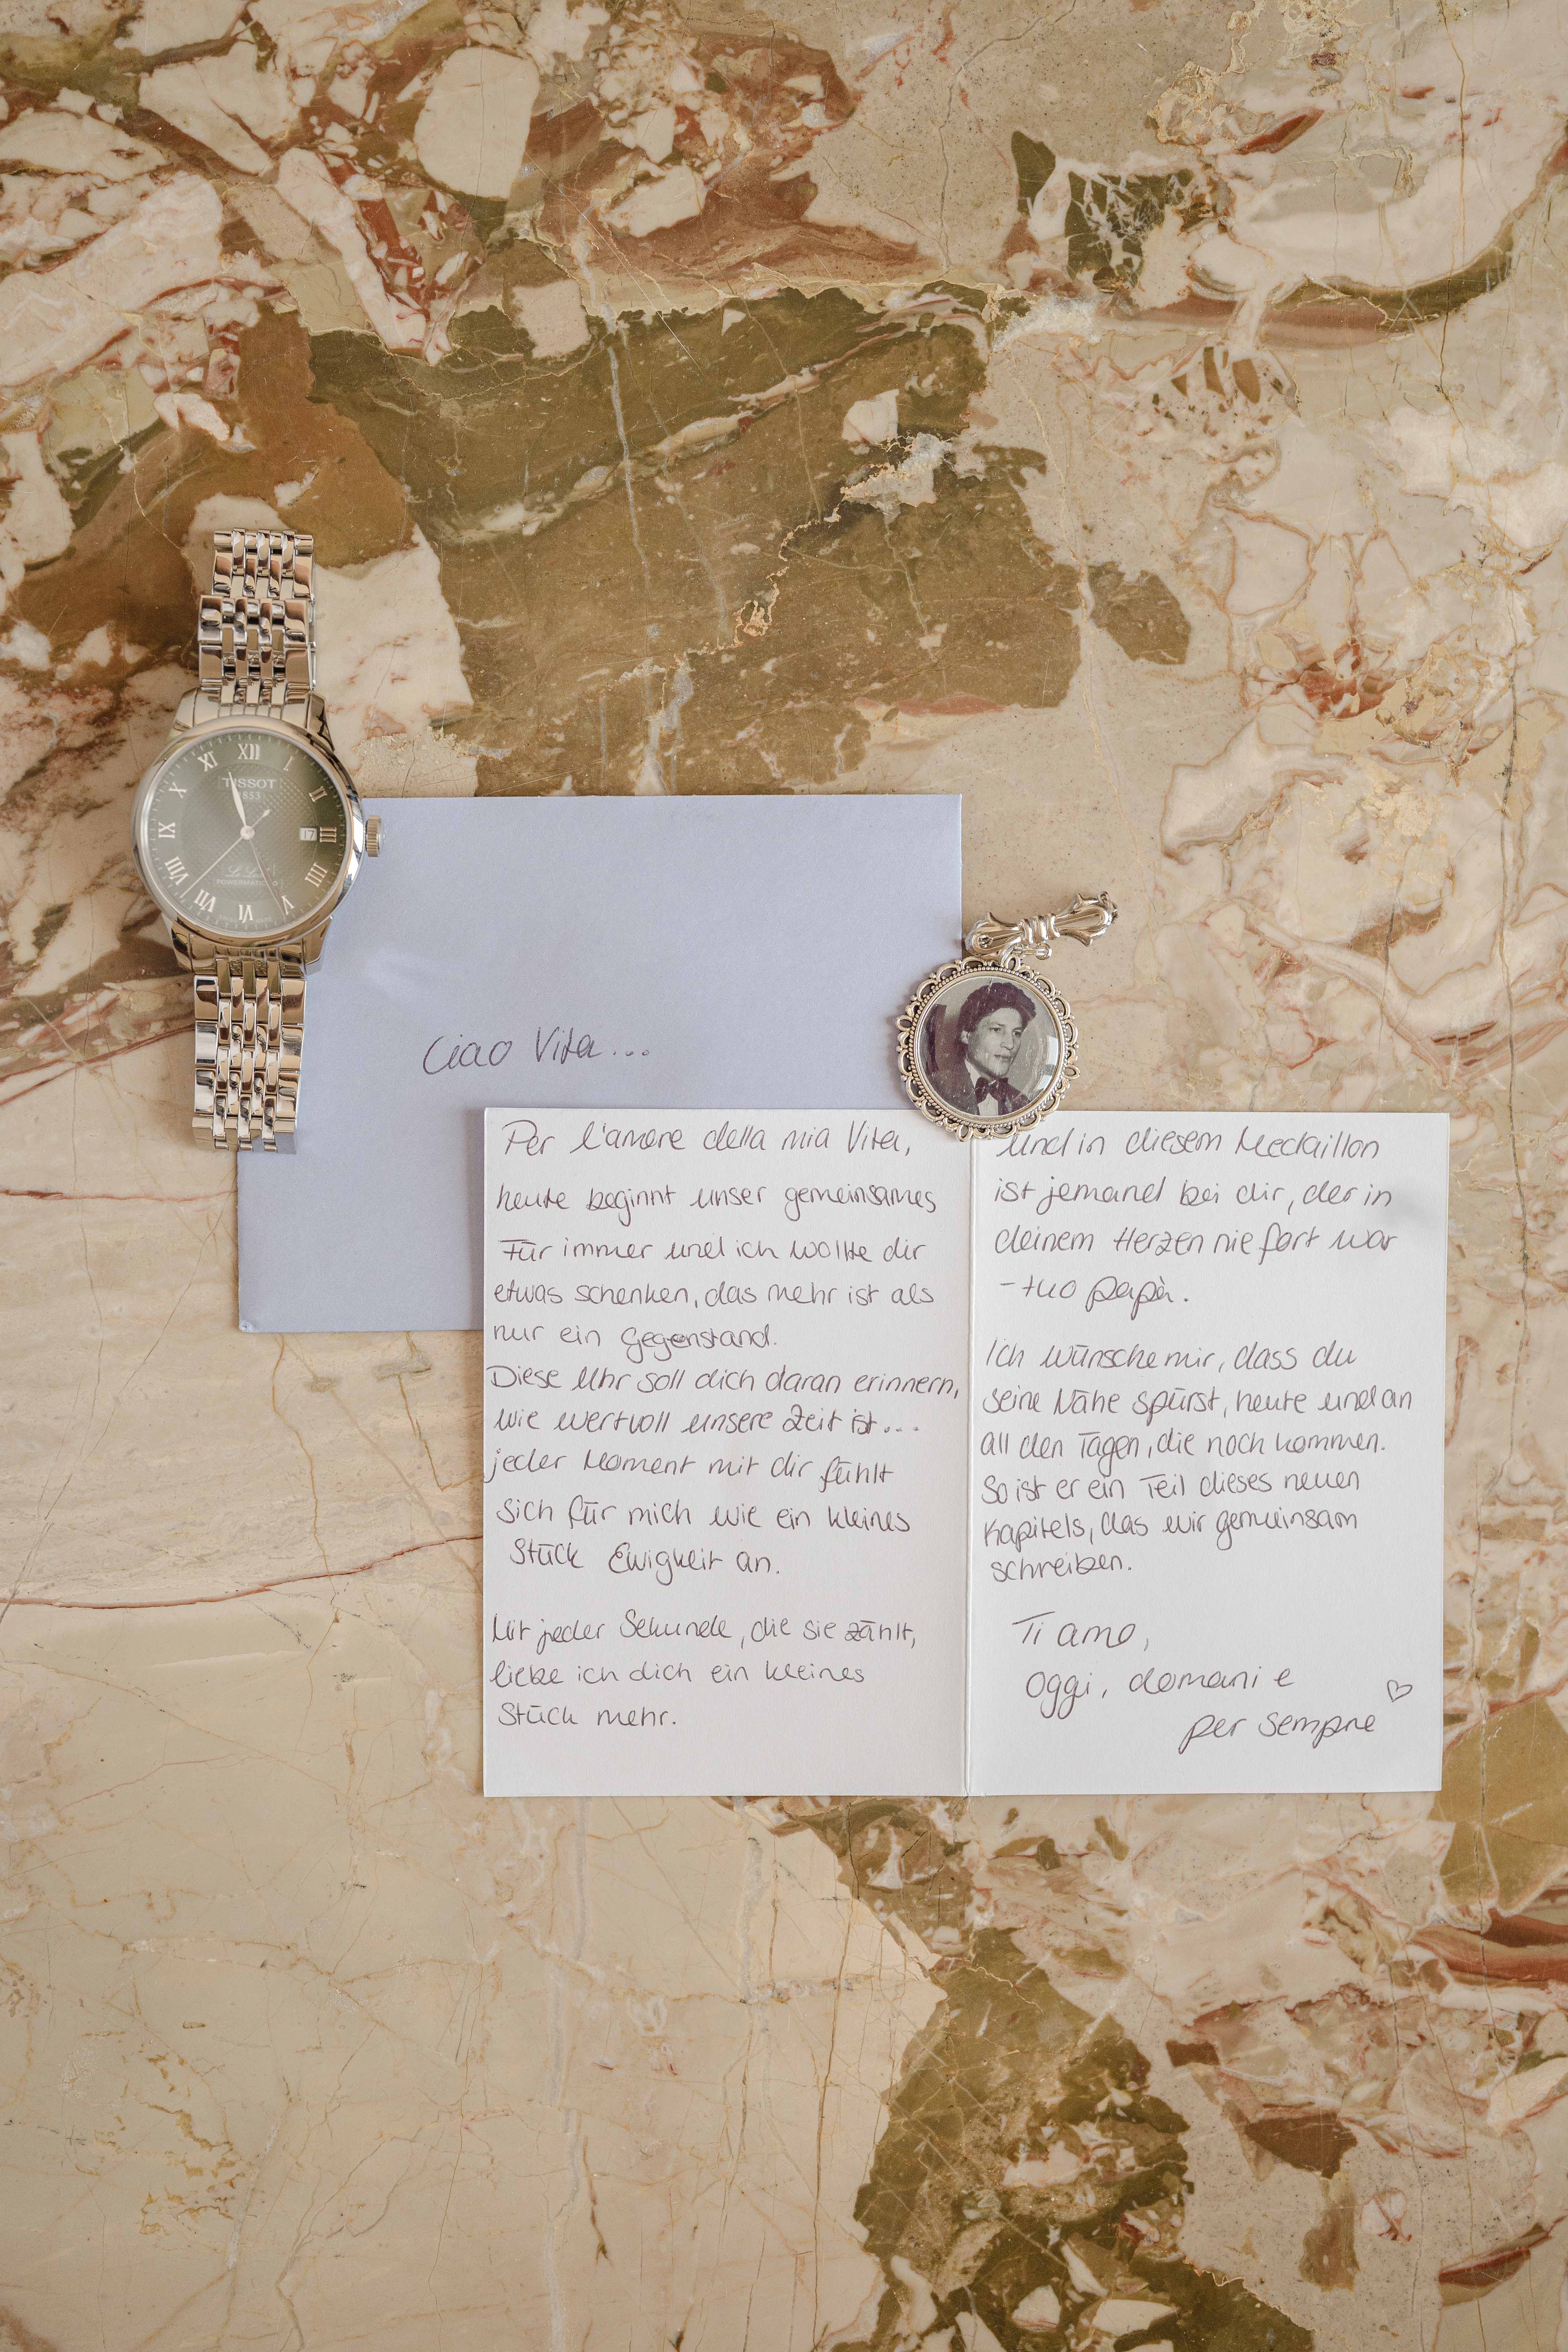 XII
I
II
III
IIII
V
VI
VII
VIII
IX
X
XI
TISSOT
1853
17
POWERMATIC
Ciao Vita...
Per l'amore della mia Vita,
heute beginnt unser gemeinsames
Für immer und ich wollte dir
etwas schenken, das mehr ist als
nur ein Gegenstand.
Diese Uhr soll dich daran erinnern,
wie wertvoll unsere Zeit ist...
jeder Moment mit dir fühlt
sich für mich wie ein kleines
Stück Ewigkeit an.
Mit jeder Sekunde, die sie zählt,
liebe ich dich ein kleines
Stück mehr.
Und in diesem Medaillon
ist jemand bei dir, der in
deinem Herzen nie fort war
- tuo papà.
Ich wünsche mir, dass du
seine Nähe spürst, heute und an
all den Tagen, die noch kommen.
So ist er ein Teil dieses neuen
Kapitels, das wir gemeinsam
schreiben.
Ti amo,
Oggi, domani e
per sempre